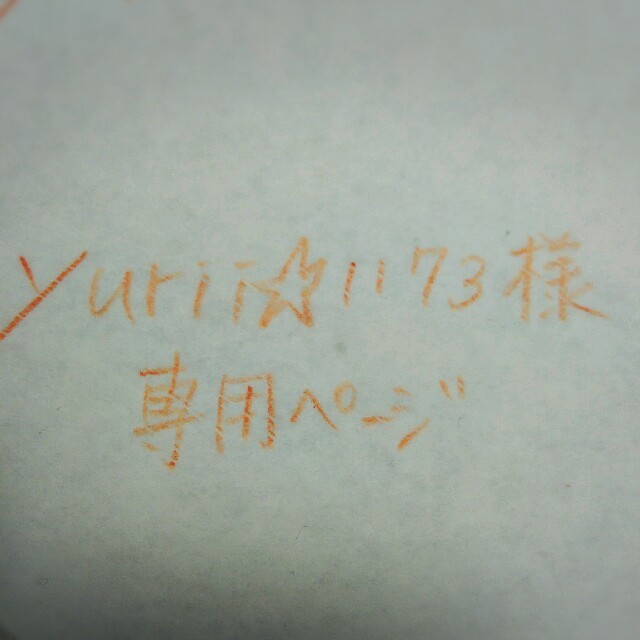 Yurii☆1173様
専用ページ